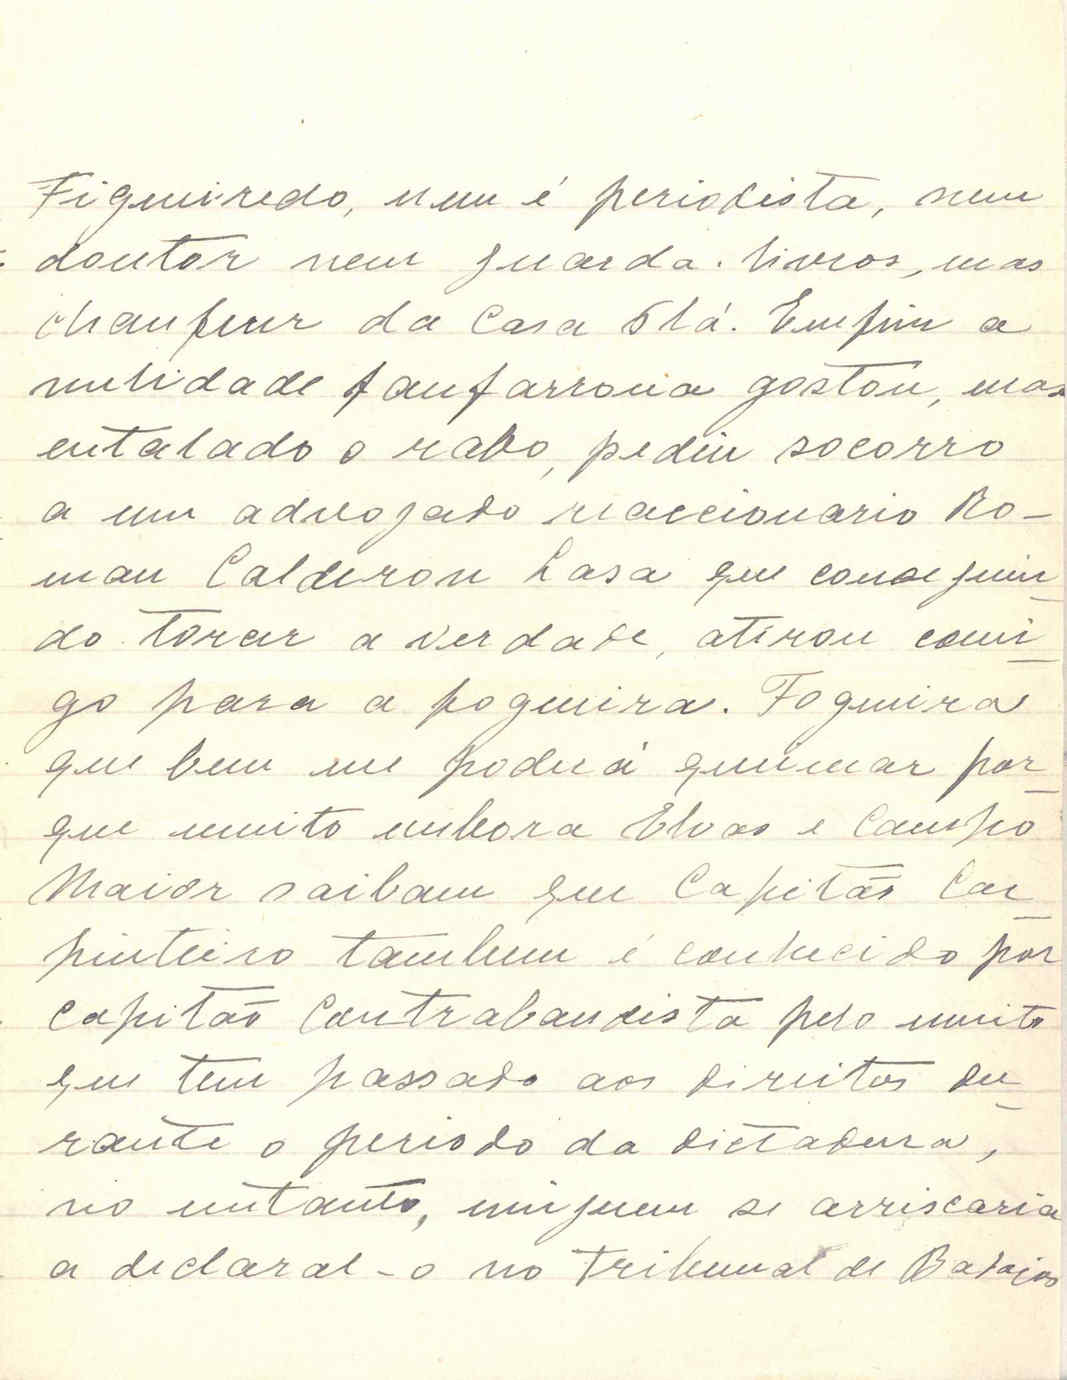 Figueiredo, nem é periodista, nem
doutor nem guarda-livros, mas
chaufeur da Casa Slá. Emfim a
nulidade fanfarrona gostou, mas
entalado o rabo, pediu socorro
a um advogado reaccionario Ro-
man Calderon Casa que conseguin-
do torcer a verdade, atirou comi-
go para a fogueira. Fogueira
que bem me poderá queimar por-
que muito embora Elvas e Campo
Maior saibam que Capitão Car-
pinteiro tambem é conhecido por
capitão Contrabandista pelo muito
que tem passado aos direitos du-
rante o periodo da dictadura,
no emtanto, ninguem se arriscaria
a declaral-o no Tribunal de Badajos